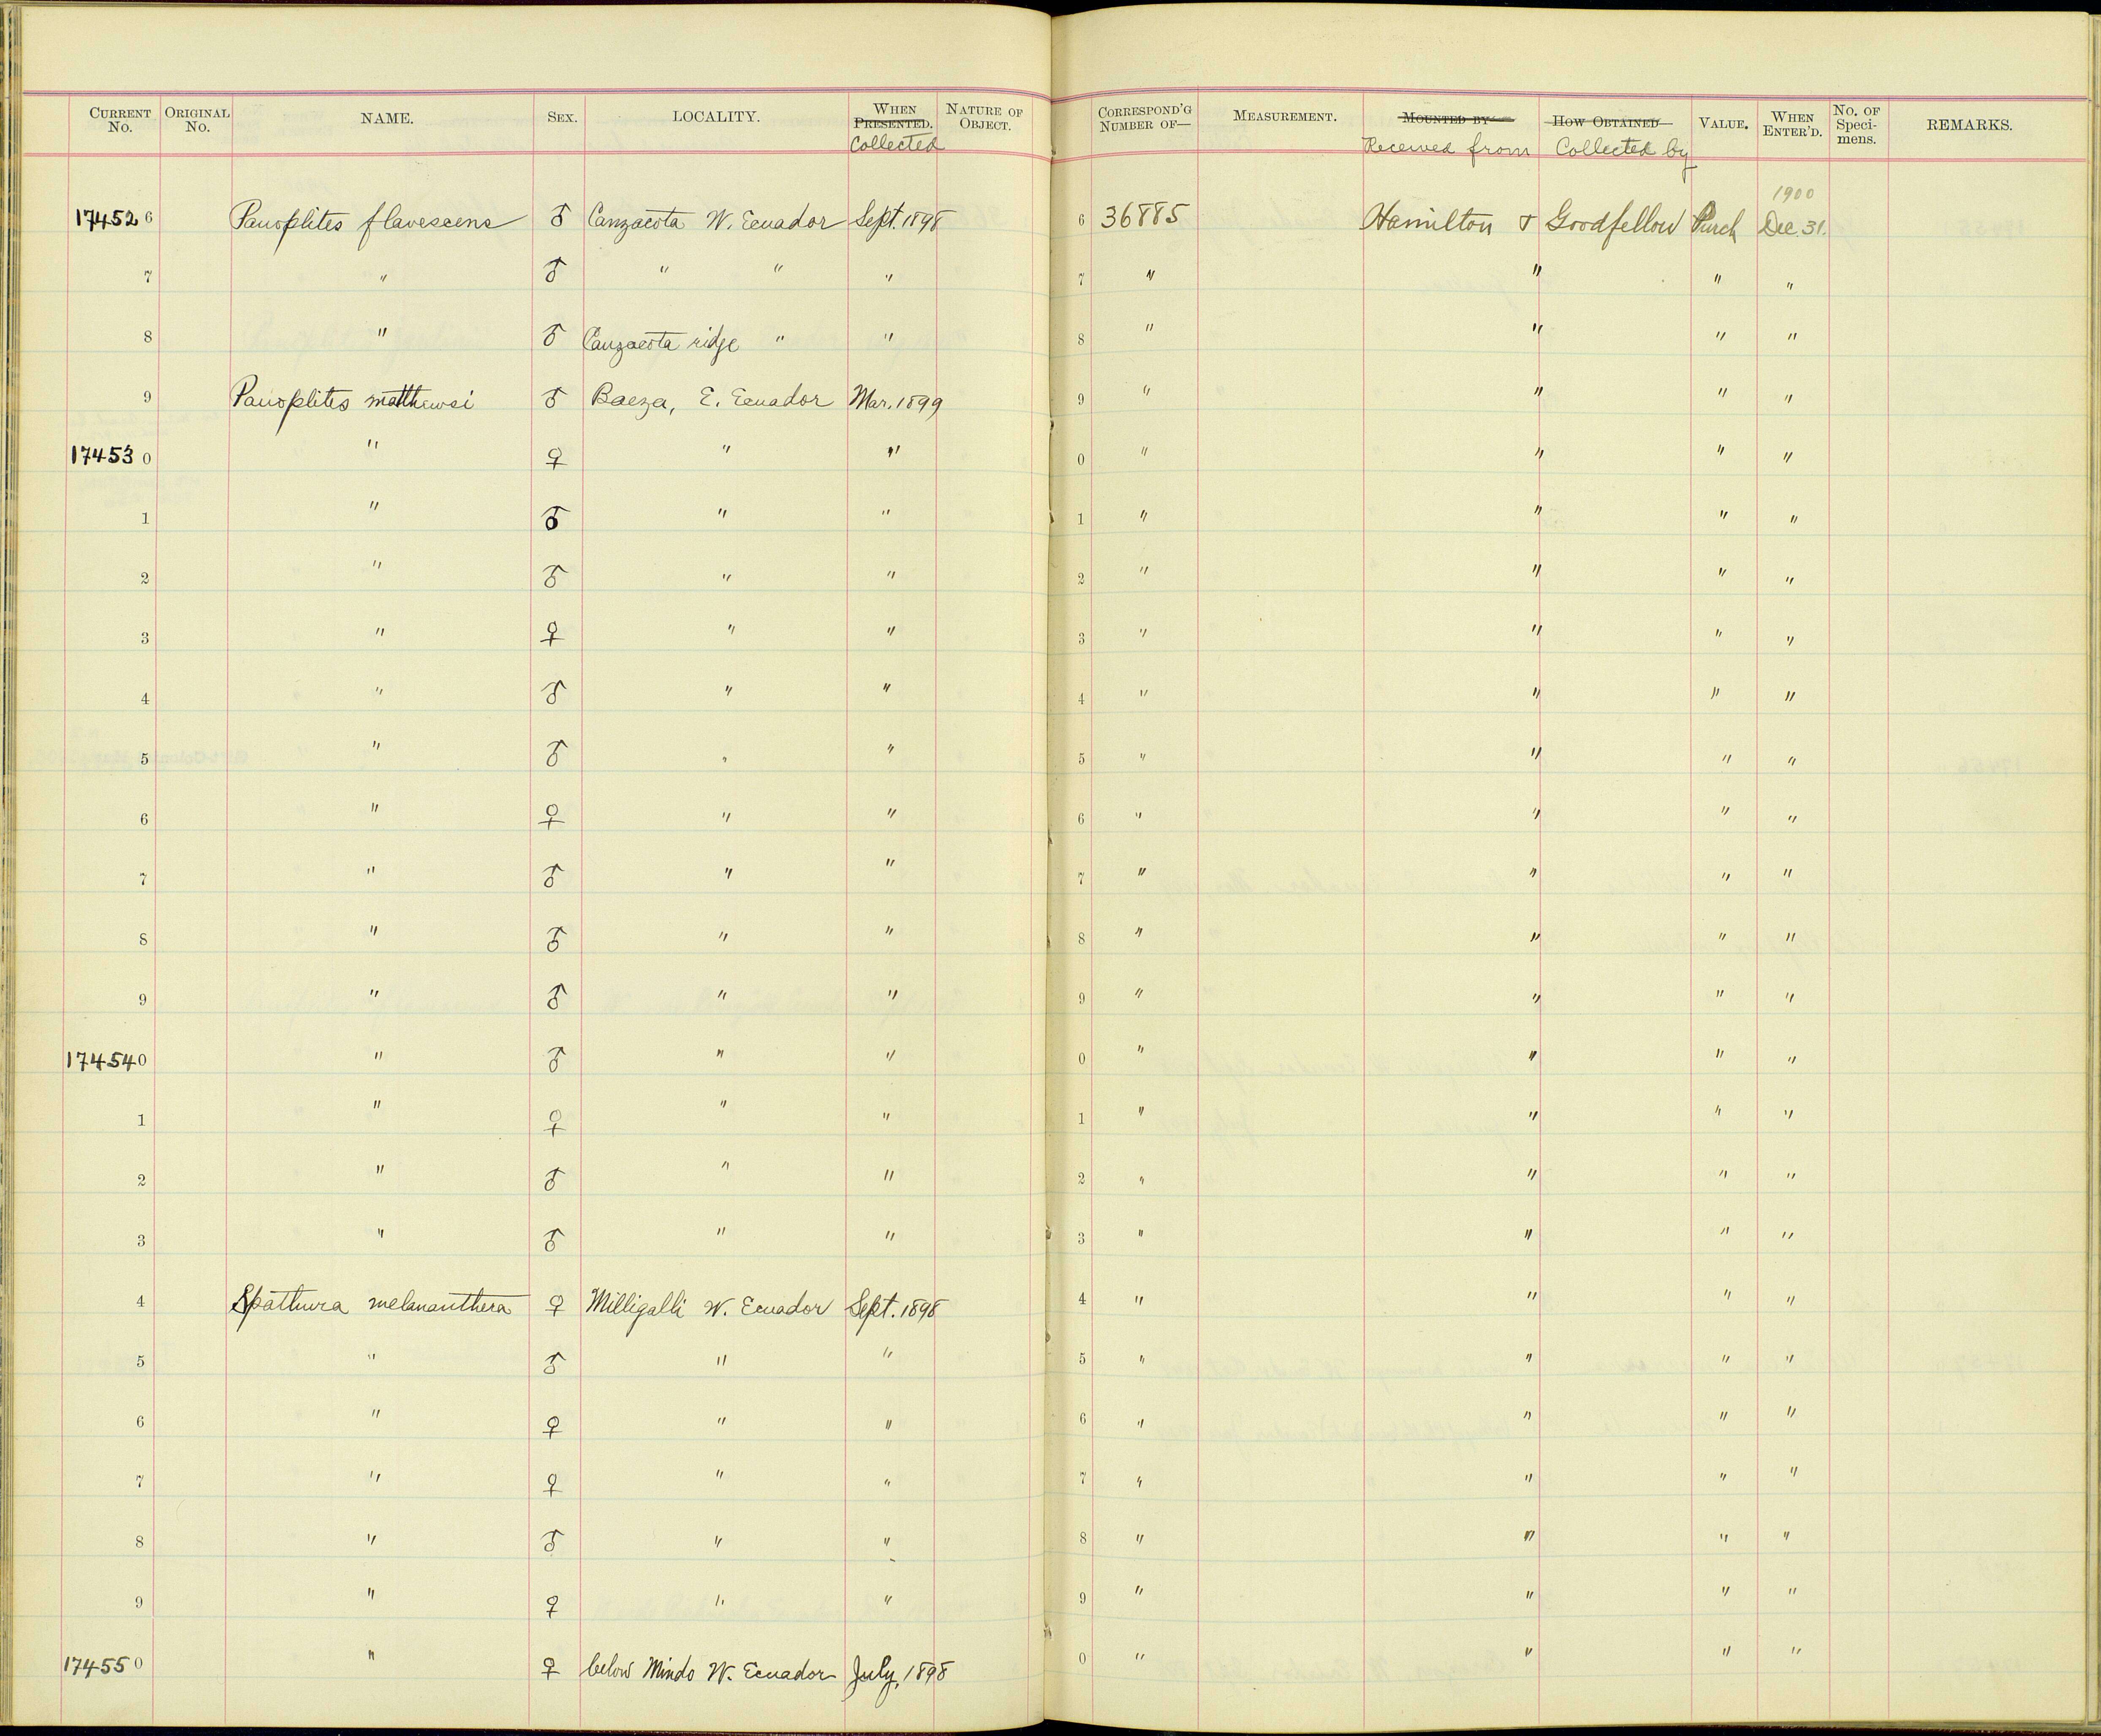 CURRENT No. ORIGINAL No. NAME. SEX. LOCALITY. WHEN PRESENTED. Collected NATURE OF OBJECT. CORRESPOND'G NUMBER OF— MEASUREMENT. MOUNTED BY Received from HOW OBTAINED Collected by VALUE. WHEN ENTER'D. No. OF Speci- mens. REMARKS.
1900
17452 6 Panoplites flavescens ♂ Canzacota W. Ecuador Sept. 1898 6 36885 Hamilton & Goodfellow Purch Dec 31.
7 " ♂ " " " 7 " " " "
8 " ♂ Canzacota ridge " " 8 " " " "
9 Panoplites matthewsi ♂ Baeza, E. Ecuador Mar. 1899 9 " " " "
17453 0 " ♀ " " 0 " " " "
1 " ♂ " " 1 " " " "
2 " ♂ " " 2 " " " "
3 " ♀ " " 3 " " " "
4 " ♂ " " 4 " " " "
5 " ♂ " " 5 " " " "
6 " ♀ " " 6 " " " "
7 " ♂ " " 7 " " " "
8 " ♂ " " 8 " " " "
9 " ♂ " " 9 " " " "
17454 0 " ♂ " " 0 " " " "
1 " ♀ " " 1 " " " "
2 " ♂ " " 2 " " " "
3 " ♂ " " 3 " " " "
4 Spathura melananthera ♀ Milligalli W. Ecuador Sept. 1898 4 " " " "
5 " ♂ " " 5 " " " "
6 " ♀ " " 6 " " " "
7 " ♀ " " 7 " " " "
8 " ♂ " " 8 " " " "
9 " ♀ " " 9 " " " "
17455 0 " ♀ below Mindo W. Ecuador July, 1898 0 " " " "